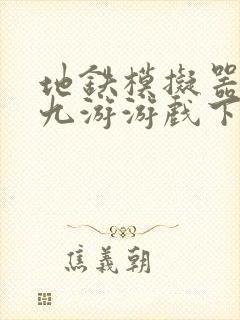 地鉄模擬器
九游游戲下
焦義朝